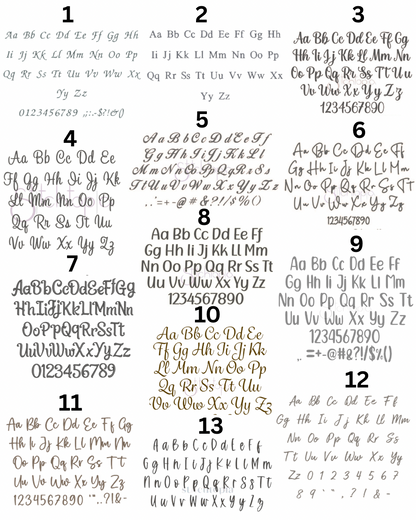 1
Aa Bb Cc Dd Ee Ff Gg Hh
Ii Jj Kk Ll Mm Nn Oo Pp
Qq Rr Ss Tt Uu Vv Ww Xx
Yy Zz
0123456789 .,:;-$?!&()
2
Aa Bb Cc Dd Ee Ff Gg Hh
Ii Jj Kk Ll Mm Nn Oo Pp
Qq Rr Ss Tt Uu Vv Ww Xx
Yy Zz
3
Aa Bb Cc Dd Ee Ff Gg
Hh Ii Jj Kk Ll Mm Nn
Oo Pp Qq Rr Ss Tt Uu
Vv Ww Xx Yy Zz
1234567890
4
Aa Bb Cc Dd Ee
Ff Gg Hh Ii Jj Kk
Ll Mm Nn Oo Pp
Qq Rr Ss Tt Uu
Vv Ww Xx Yy Zz
5
Aa Bb Cc Dd Ee Ff
Gg Hh Ii Jj Kk Ll
Mm Nn Oo Pp Qq Rr Ss
Tt Uu Vv Ww Xx Yy Zz
6
Aa Bb Cc Dd Ee Ff
Gg Hh Ii Jj Kk Ll Mm
Nn Oo Pp Qq Rr Ss Tt
Uu Vv Ww Xx Yy Zz
1234567890
7
AaBbCcDdEeFfGg
HhIiJjKkLlMmNn
OoPpQqRrSsTt
UuVvWwXxYyZz
0123456789
8
Aa Bb Cc Dd Ee Ff
Gg Hh Ii Jj Kk Ll Mm
Nn Oo Pp Qq Rr Ss Tt
Uu Vv Ww Xx Yy Zz
1234567890
9
Aa Bb Cc Dd Ee Ff
Gg Hh Ii Jj Kk Ll Mm
Nn Oo Pp Qq Rr Ss Tt
Uu Vv Ww Xx Yy Zz
1234567890
.,:=+-@#&?!/$%()
10
Aa Bb Cc Dd Ee
Ff Gg Hh Ii Jj Kk
Ll Mm Nn Oo Pp
Qq Rr Ss Tt Uu
Vv Ww Xx Yy Zz
11
Aa Bb Cc Dd Ee Ff Gg
Hh Ii Jj Kk Ll Mm Nn
Oo Pp Qq Rr Ss Tt
Uu Vv Ww Xx Yy Zz
1234567890 '".,?!&-
12
Aa Bb Cc Dd Ee Ff
Gg Hh Ii Jj Kk Ll Mm
Nn Oo Pp Qq Rr Ss
Tt Uu Vv Ww Xx Yy
Zz 0 1 2 3 4 5 6 7
8 9 ' " , . ? ! & -
13
AaBbCcDdEeFf
GgHhIiJjKkLlMm
NnOoPpQqRrSsTt
UuVvWwXxYyZz